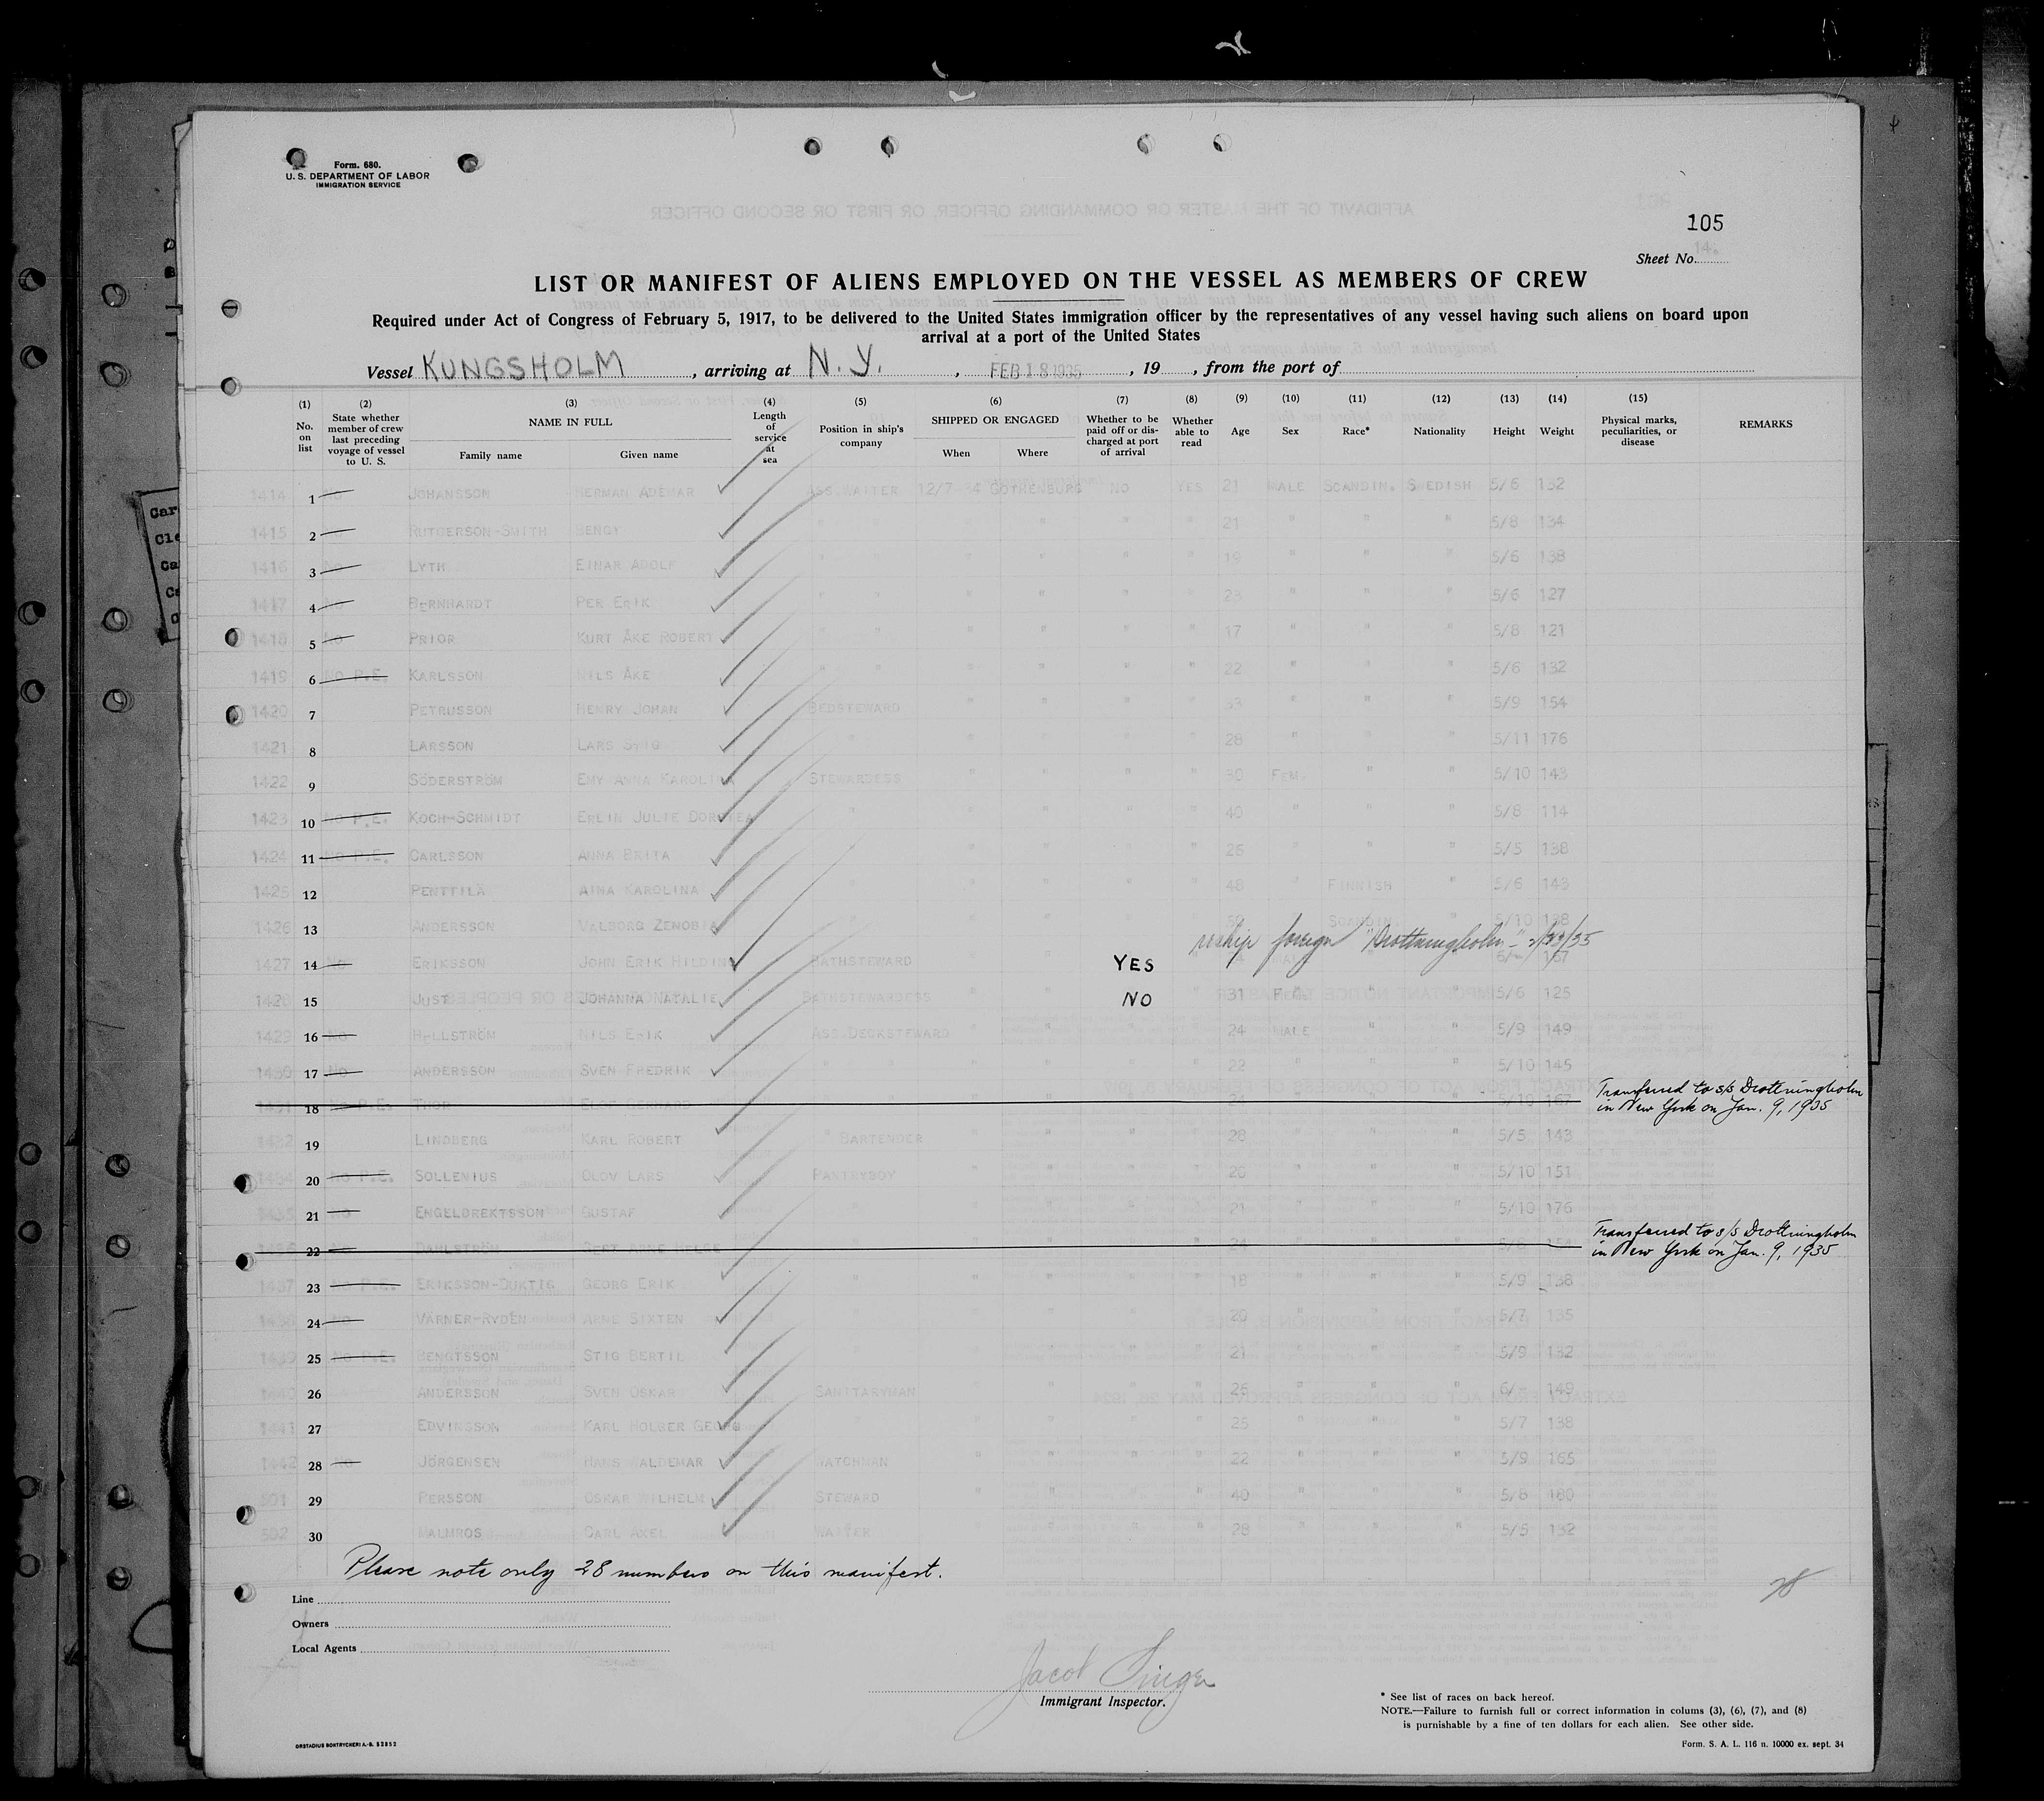 Form. 680.
U. S. DEPARTMENT OF LABOR
IMMIGRATION SERVICE
105
Sheet No. 14.
LIST OR MANIFEST OF ALIENS EMPLOYED ON THE VESSEL AS MEMBERS OF CREW
Required under Act of Congress of February 5, 1917, to be delivered to the United States immigration officer by the representatives of any vessel having such aliens on board upon
arrival at a port of the United States
Vessel KUNGSHOLM, arriving at N. Y., FEB 18 1935, 19, from the port of
(1) No. on list (2) State whether member of crew last preceding voyage of vessel to U. S. (3) NAME IN FULL Family name Given name (4) Length of service at sea (5) Position in ship's company (6) SHIPPED OR ENGAGED When Where (7) Whether to be paid off or discharged at port of arrival (8) Whether able to read (9) Age (10) Sex (11) Race* (12) Nationality (13) Height (14) Weight (15) Physical marks, peculiarities, or disease REMARKS
1414 1 No JOHANSSON HERMAN ADEMAR ASS.WAITER 12/7-34 GOTHENBURG NO YES 21 MALE SCANDIN. SWEDISH 5/6 132
1415 2 RUTGERSON-SMITH BENGT " " " " " " 21 " " " 5/8 134
1416 3 LYTH EINAR ADOLF " " " " " " 19 " " " 5/6 138
1417 4 No BERNHARDT PER ERIK " " " " " " 23 " " " 5/6 127
1418 5 No PRIOR KURT ÅKE ROBERT " " " " " " 17 " " " 5/8 121
1419 6 NO P.E. KARLSSON NILS ÅKE " " " " " " 22 " " " 5/6 132
1420 7 PETRUSSON HENRY JOHAN BEDSTEWARD " " " " 33 " " " 5/9 154
1421 8 LARSSON LARS STIG " " " " " 28 " " " 5/11 176
1422 9 SÖDERSTRÖM EMY ANNA KAROLINA STEWARDESS " " " " 30 FEM. " " 5/10 143
1423 10 NO P.E. KOCH-SCHMIDT ERLIN JULIE DOROTHEA " " " " " 40 " " " 5/8 114
1424 11 NO P.E. CARLSSON ANNA BRITA " " " " " 26 " " " 5/5 138
1425 12 PENTTILÄ AINA KAROLINA " " " " " 48 " FINNISH " 5/6 143
1426 13 ANDERSSON VALBORG ZENOBIA " " " " " 50 " SCANDIN. " 5/10 138
reship foreign "Drottningholm"
1427 14 No ERIKSSON JOHN ERIK HILDING BATHSTEWARD YES
1428 15 JUST JOHANNA NATALIE BATHSTEWARDESS NO 31 FEM. " " 5/6 125
1429 16 No HELLSTRÖM NILS ERIK ASS.DECKSTEWARD " " " " 24 MALE " " 5/9 149
1430 17 No ANDERSSON SVEN FREDRIK " " " " " " 22 " " " 5/10 145
1431 18 NO P.E. THOR 5/10 167 Transferred to s/s Drottningholm
in New York on Jan. 9, 1935
1432 19 LINDBERG KARL ROBERT " BARTENDER " " " " 28 " " " 5/5 143
1434 20 NO P.E. SOLLENIUS OLOV LARS PANTRYBOY " " " " 20 " " " 5/10 151
1435 21 No ENGELBREKTSSON GUSTAF " " " " " 21 " " " 5/10 176
1436 22 No DAHLSTRÖM GERT ARNE HELGE Transferred to s/s Drottningholm
in New York on Jan. 9, 1935
1437 23 NO P.E. ERIKSSON-DUKTIG GEORG ERIK " " " " " 18 " " " 5/9 138
1438 24 No VÄRNER-RYDEN ARNE SIXTEN " " " " " 20 " " " 5/7 135
1439 25 NO P.E. BENGTSSON STIG BERTIL " " " " " 21 " " " 5/9 132
1440 26 ANDERSSON SVEN OSKAR SANITARYMAN " " " " 26 " " " 6/- 149
1441 27 EDVINSSON KARL HOLGER GEORG " " " " " 25 " " " 5/7 138
1442 28 No JÖRGENSEN HANS WALDEMAR WATCHMAN " " " " 22 " " " 5/9 165
501 29 PERSSON OSKAR WILHELM STEWARD " " " " 40 " " " 5/8 180
502 30 MALMROS CARL AXEL WAITER " " " " 28 " " " 5/5 132
Please note only 28 numbers on this manifest.
28
Line
Owners
Local Agents
Jacob Singer
Immigrant Inspector.
* See list of races on back hereof.
NOTE.—Failure to furnish full or correct information in colums (3), (6), (7), and (8)
is punishable by a fine of ten dollars for each alien. See other side.
ORSTADIUS BOKTRYCKERI A.-B. 52852
Form. S. A. L. 116 n. 10000 ex. sept. 34